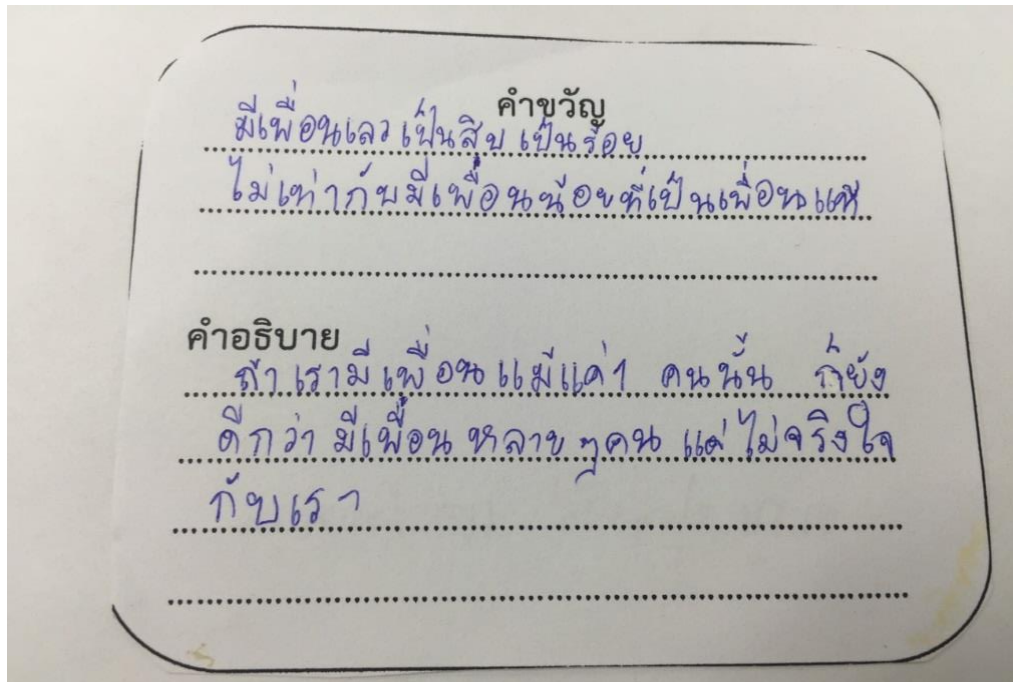 คำขวัญ
มีเพื่อนเลว เป็นสิบ เป็นร้อย
ไม่เท่ากับมีเพื่อนน้อยที่เป็นเพื่อนแท้
คำอธิบาย
ถ้า เรามี เพื่อน แม้แค่ 1 คนนั้น ก็ยัง
ดีกว่า มีเพื่อน หลาย ๆ คน แต่ ไม่จริงใจ
กับเรา